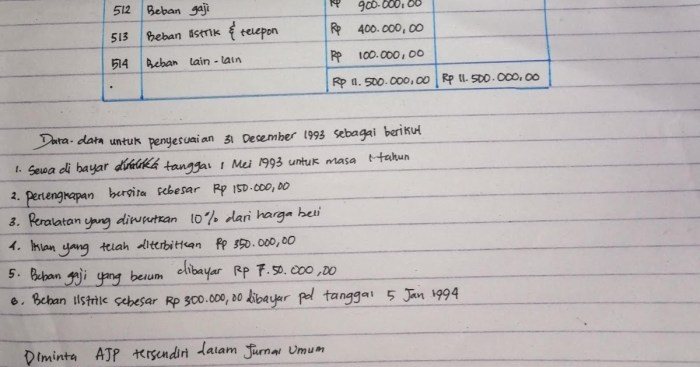 512 Beban gaji Rp 900.000,00
513 Beban listrik & telepon Rp 400.000,00
514 Beban lain-lain Rp 100.000,00
Rp 11.500.000,00 Rp 11.500.000,00
Data-data untuk penyesuaian 31 Desember 1993 sebagai berikut
1. Sewa di bayar tanggal 1 Mei 1993 untuk masa 1 tahun
2. perlengkapan bersisa sebesar Rp 150.000,00
3. Peralatan yang disusutkan 10% dari harga beli
4. Iklan yang telah diterbitkan Rp 350.000,00
5. Beban gaji yang belum dibayar Rp 7.50.000,00
6. Beban listrik sebesar Rp 300.000,00 dibayar pd tanggal 5 Jan 1994
Diminta AJP tersendiri dalam Jurnal Umum